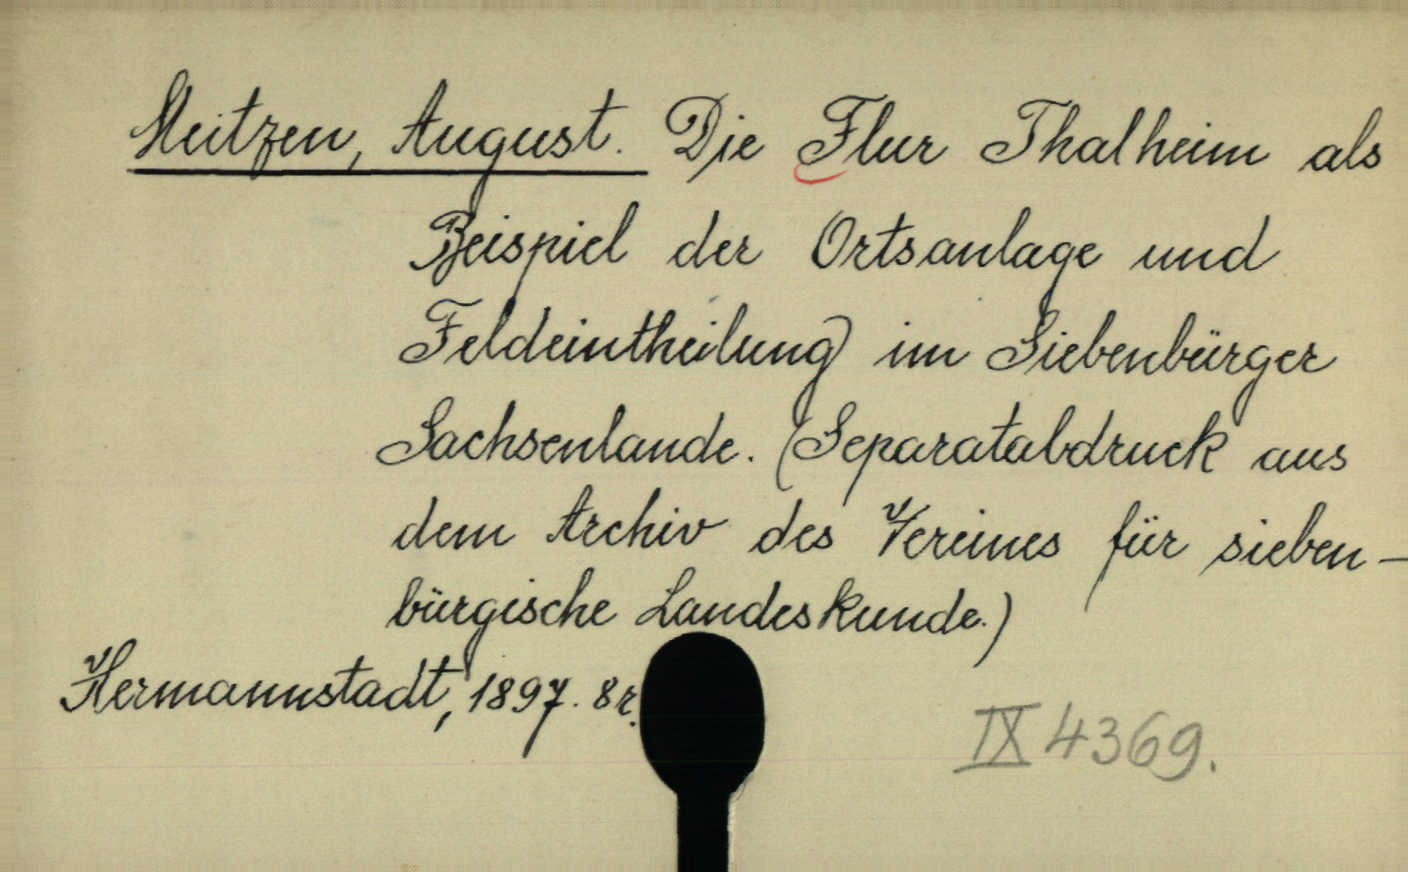 Meitzen, August. Die Flur Thalheim als
Beispiel der Ortsanlage und
Feldeintheilung) im Siebenbürger
Sachsenlande. (Separatabdruck aus
dem Archiv des Vereines für sieben-
bürgische Landeskunde.)
Hermannstadt, 1897. 8r.
IX 4369.